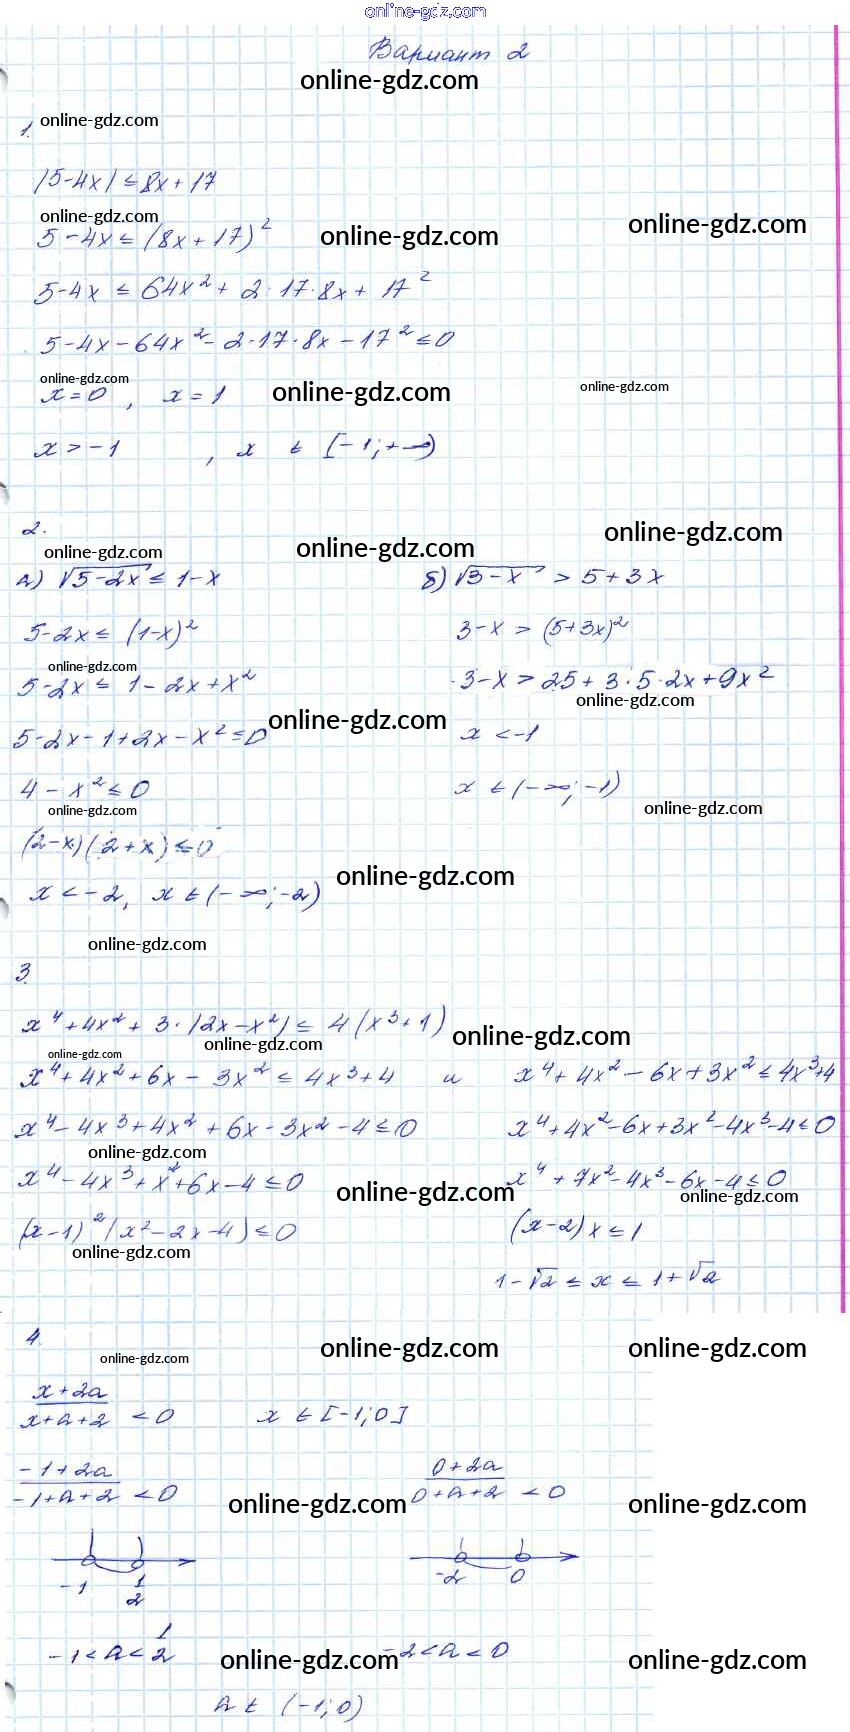 online-gdz.com
Вариант 2
online-gdz.com
1. online-gdz.com
|5-4x| ≤ 8x+17
online-gdz.com
5-4x ≤ (8x+17)² online-gdz.com online-gdz.com
5-4x ≤ 64x² + 2·17·8x + 17²
5-4x-64x²-2·17·8x-17² ≤ 0
online-gdz.com online-gdz.com online-gdz.com
x=0, x=1
x > -1, x ∈ [-1; +∞)
2.
online-gdz.com online-gdz.com online-gdz.com
а) √5-2x ≤ 1-x
5-2x ≤ (1-x)²
online-gdz.com
5-2x ≤ 1-2x+x²
online-gdz.com
5-2x-1+2x-x² ≤ 0
4-x² ≤ 0
online-gdz.com
(2-x)(2+x) ≤ 0
x < -2, x ∈ (-∞; -2)
б) √3-x > 5+3x
3-x > (5+3x)²
3-x > 25+3·5·2x+9x²
online-gdz.com
x < -1
x ∈ (-∞; -1)
online-gdz.com
online-gdz.com
online-gdz.com
3.
x⁴+4x²+3·|2x-x²| ≤ 4(x³+1)
online-gdz.com online-gdz.com
online-gdz.com
x⁴+4x²+6x-3x² ≤ 4x³+4 и x⁴+4x²-6x+3x² ≤ 4x³+4
x⁴-4x³+4x²+6x-3x²-4 ≤ 0 x⁴+4x²-6x+3x²-4x³-4 ≤ 0
online-gdz.com
x⁴-4x³+x²+6x-4 ≤ 0 x⁴+7x²-4x³-6x-4 ≤ 0
online-gdz.com online-gdz.com
(x-1)²(x²-2x-4) ≤ 0 (x-2)x ≤ 1
online-gdz.com
1-√2 ≤ x ≤ 1+√2
4.
online-gdz.com online-gdz.com online-gdz.com
x+2a
x+a+2 < 0 x ∈ [-1; 0]
-1+2a
-1+a+2 < 0
0+2a
0+a+2 < 0
online-gdz.com online-gdz.com
-1 1
2
-2 0
-1 < a < 1
2
-2 < a < 0
online-gdz.com online-gdz.com
a ∈ (-1; 0)